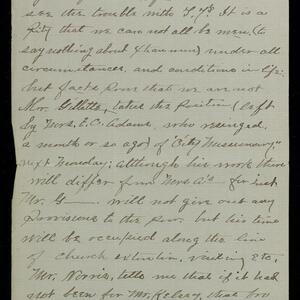 see the trouble with T. Y. It is a
pity that we can not all be men, (to
say nothing about women) under all
circumstances, and conditions in life:
but facts prove that we are not
Mr. Gillette, takes the position (left
by Mrs. A.C. Adams, who resigned,
a month or so ago) of "City Missionary,"
next Monday; Although his work there
will differ from Mrs A's — for
Mr. G— will not give out any
Provisions to the poor. but his time
will be occupied along the line
of church extention, visiting etc.
Mr. Norris, tells me that if it had
not been for Mr. that